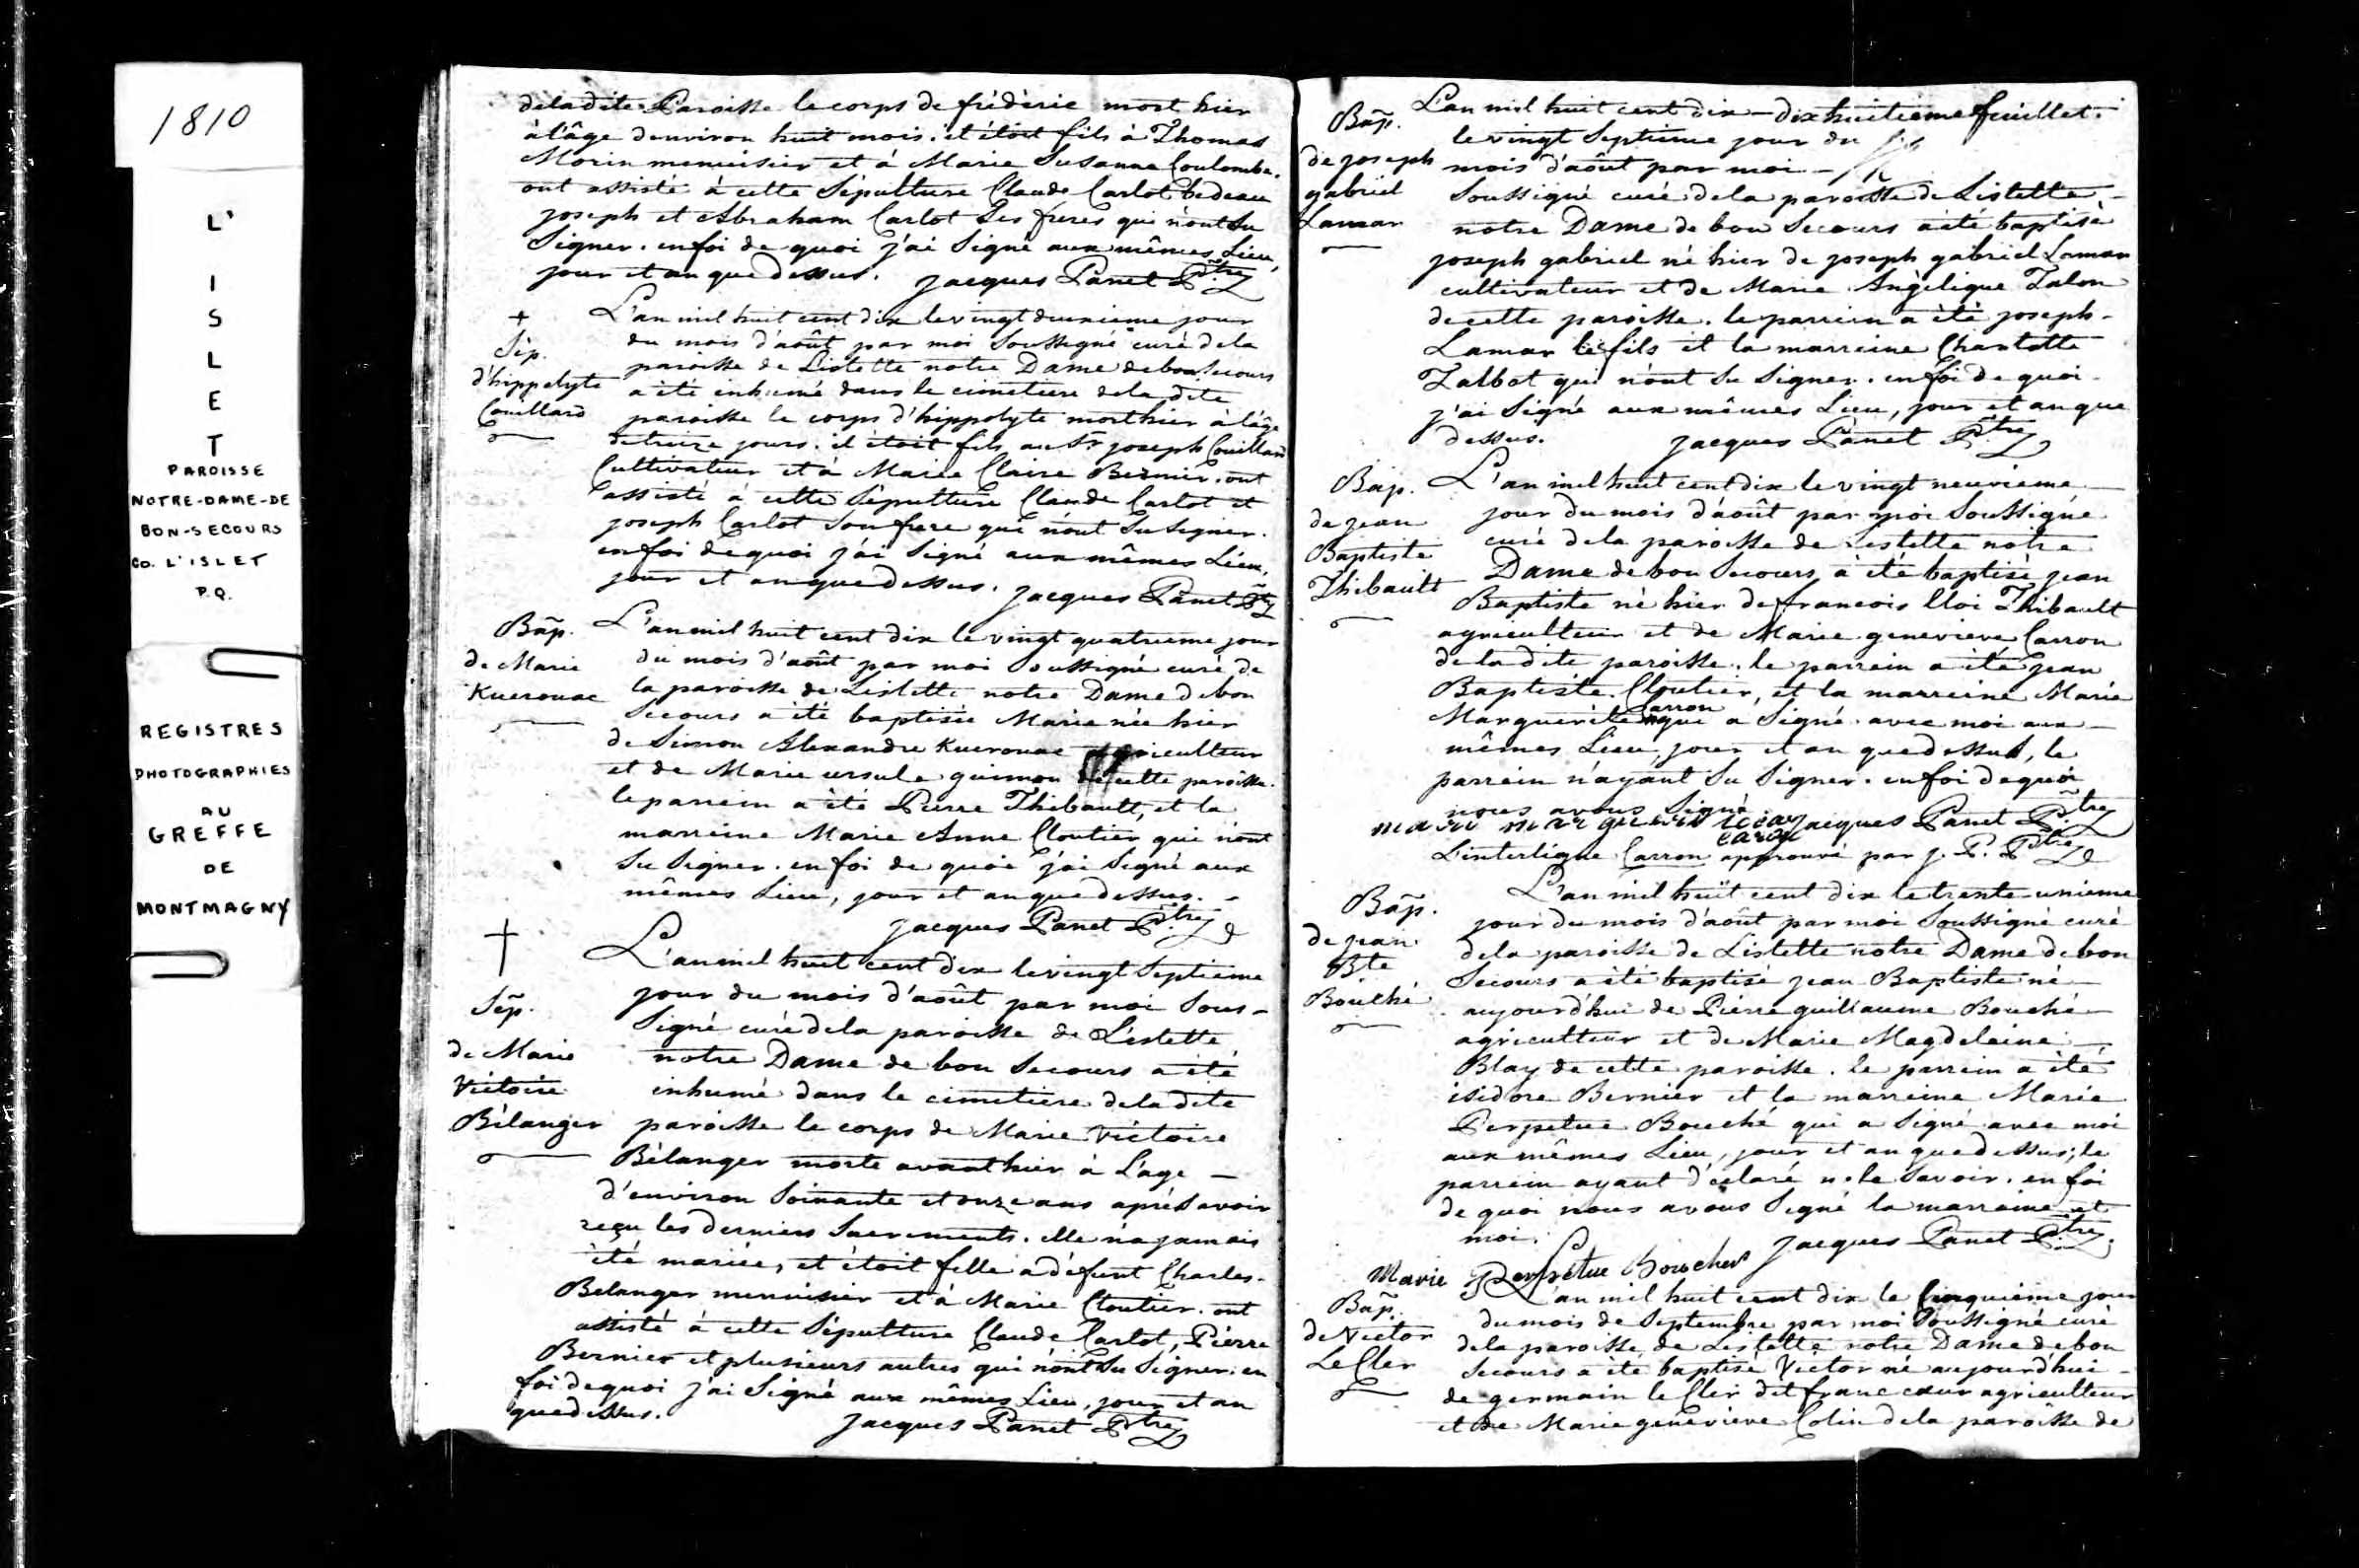 1810
L'
I
S
L
E
T
PAROISSE
NOTRE-DAME-DE
BON-SECOURS
CO. L'ISLET
P.Q.
REGISTRES
PHOTOGRAPHIES
AU
GREFFE
DE
MONTMAGNY
dela dite Paroisse le corps de fréderic mort hier
à l'âge d'environ huit mois. il étoit fils à Thomas
Morin menuisier et à Marie Susanne Coulombe.
ont assisté à cette Sépulture Claude Carlot bedeau
joseph et Abraham Carlot Ses freres qui n'ont Su
Signer. en foi de quoi j'ai Signé aux mêmes Lieu,
jour et an que dessus. jacques Panet Ptre
+
Sép.
d'hippolyte
Couillard
L'an mil huit cent dix le vingt deuxieme jour
du mois d'août par moi Soussigné curé de la
paroisse de Lislette notre Dame de bon Secours
a été inhumé dans le cimetiere dela dite
paroisse le corps d'hippolyte mort hier à l'âge
de treize jours. il étoit fils au Sr joseph Couillard
Cultivateur et à Marie Claire Bernier. ont
assisté à cette Sépulture Claude Carlot et
joseph Carlot Son frere qui n'ont Su Signer.
en foi de quoi j'ai Signé aux mêmes Lieu,
jour et an que dessus. jacques Panet Ptre
Bap.
de Marie
Kuerouac
L'an mil huit cent dix le vingt quatrieme jour
du mois d'août par moi Soussigné curé de
la paroisse de Lislette notre Dame de bon
Secours a été baptisée Marie née hier
de Simon Alexandre Kuerouac agriculteur
et de Marie ursule guimon de cette paroisse.
le parrein a été Pierre Thibault, et la
marreine Marie Anne Cloutier qui n'ont
Su Signer. en foi de quoi j'ai Signé aux
mêmes Lieu, jour et an que dessus.
jacques Panet Ptre
+
Sép.
de Marie
Victoire
Bélanger
L'an mil huit cent dix le vingt Septieme
jour du mois d'août par moi Sous-
Signé curé dela paroisse de Lislette
notre Dame de bon Secours a été
inhumé dans le cimetiere dela dite
paroisse le corps de Marie Victoire
Bélanger morte avant hier à L'age
d'environ Soixante et onze ans après avoir
reçu les derniers Sacrements. elle n'a jamais
été mariée, et étoit fille à défunt Charles
Belanger menuisier et à Marie Cloutier. ont
assisté à cette Sépulture Claude Carlot, Pierre
Bernier et plusieurs autres qui n'ont Su Signer. en
foi de quoi j'ai Signé aux mêmes Lieu, jour et an
que dessus.
jacques Panet Ptre
Bap.
de joseph
gabriel
Lamar
L'an mil huit cent dix - dix huitieme feuillet.
le vingt Septieme jour du
mois d'août par moi
Soussigné curé dela paroisse de Lislette
notre Dame de bon Secours a été baptisé
joseph gabriel né hier de joseph gabriel Lamar
cultivateur et de Marie Angèlique Talon
de cette paroisse. le parrein a été joseph
Lamar le fils et la marreine Charlotte
Talbot qui n'ont Su Signer. en foi de quoi
j'ai Signé aux mêmes Lieu, jour et an que
dessus. jacques Panet Ptre
Bap.
de jean
Baptiste
Thibault
L'an mil huit cent dix le vingt neuvieme
jour du mois d'août par moi Soussigné
curé dela paroisse de Lislette notre
Dame de bon Secours a été baptisé jean
Baptiste né hier de francois Eloi Thibault
agriculteur et de Marie genevieve Carron
de la dite paroisse. le parrein a été jean
Baptiste Cloutier, et la marreine Marie
Marguerite Carron qui a Signé avec moi aux
mêmes Lieu, jour et an que dessus, le
parrein n'ayant Su Signer. en foi de quoi
nous avons Signé.
jacques Panet Ptre
caron
L'interligne Carron approuvé par j. P. Ptre
Bap.
de jean
Bte
Bouché
L'an mil huit cent dix le trente unieme
jour du mois d'août par moi Soussigné curé
dela paroisse de Lislette notre Dame de bon
Secours a été baptisé jean Baptiste né
aujourd'hui de Pierre guillaume Bouché
agriculteur et de Marie Magdeleine
Blay de cette paroisse. le parrein a été
isidore Bernier et la marreine Marie
Perpetue Bouché qui a Signé avec moi
aux mêmes Lieu, jour et an que dessus; le
parrein ayant déclaré ne le Savoir. en foi
de quoi nous avons Signé la marreine et
moi. jacques Panet Ptre
Marie Perpétue Boucher
Bap.
de Victor
Le Cler
L'an mil huit cent dix le Cinquieme jour
du mois de Septembre par moi Soussigné curé
dela paroisse de Lislette notre Dame de bon
Secours a été baptisé Victor né aujourd'hui
de germain le Cler dit franc cœur agriculteur
et de Marie genevieve Colin dela paroisse de